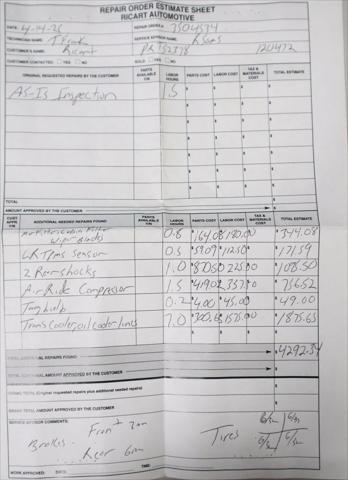 REPAIR ORDER ESTIMATE SHEET
RICART AUTOMOTIVE
DATE: 4-14-26 REPAIR ORDER #: 7504574
TECHNICIAN NAME: SERVICE ADVISOR NAME: Ross
CUSTOMER'S NAME: Ricart PRT52378 120472
CUSTOMER CONTACTED: YES NO SOLD: YES NO
ORIGINAL REQUESTED REPAIRS BY THE CUSTOMER PARTS AVAILABLE Y/N LABOR HOURS PARTS COST LABOR COST TAX & MATERIALS COST TOTAL ESTIMATE
AS-Is Inspection 1.5
TOTAL
AMOUNT APPROVED BY THE CUSTOMER
CUST APPR. Y/N ADDITIONAL NEEDED REPAIRS FOUND PARTS AVAILABLE Y/N LABOR HOURS PARTS COST LABOR COST TAX & MATERIALS COST TOTAL ESTIMATE
Cabin Filter
wiper blades 0.8 $164.08 $180.00 $344.08
LR Tpms Sensor 0.5 $59.09 $112.50 $171.59
2 Rear shocks 1.0 225.00
Air Ride Compressor 1.5 $419.02 $337.50 $756.52
Tag bulb 0.2 $4.00 $45.00 $49.00
Trans cooler, oil cooler lines 7.0 $1575.00 $1875.63
TOTAL ADDITIONAL REPAIRS FOUND $4292.34
TOTAL ADDITIONAL AMOUNT APPROVED BY THE CUSTOMER
GRAND TOTAL (Original requested repairs plus additional needed repairs)
GRAND TOTAL AMOUNT APPROVED BY THE CUSTOMER
SERVICE ADVISOR COMMENTS:
Brakes. Front 7mm
Rear 6mm
Tires
WORK APPROVED: DATE: TIME: